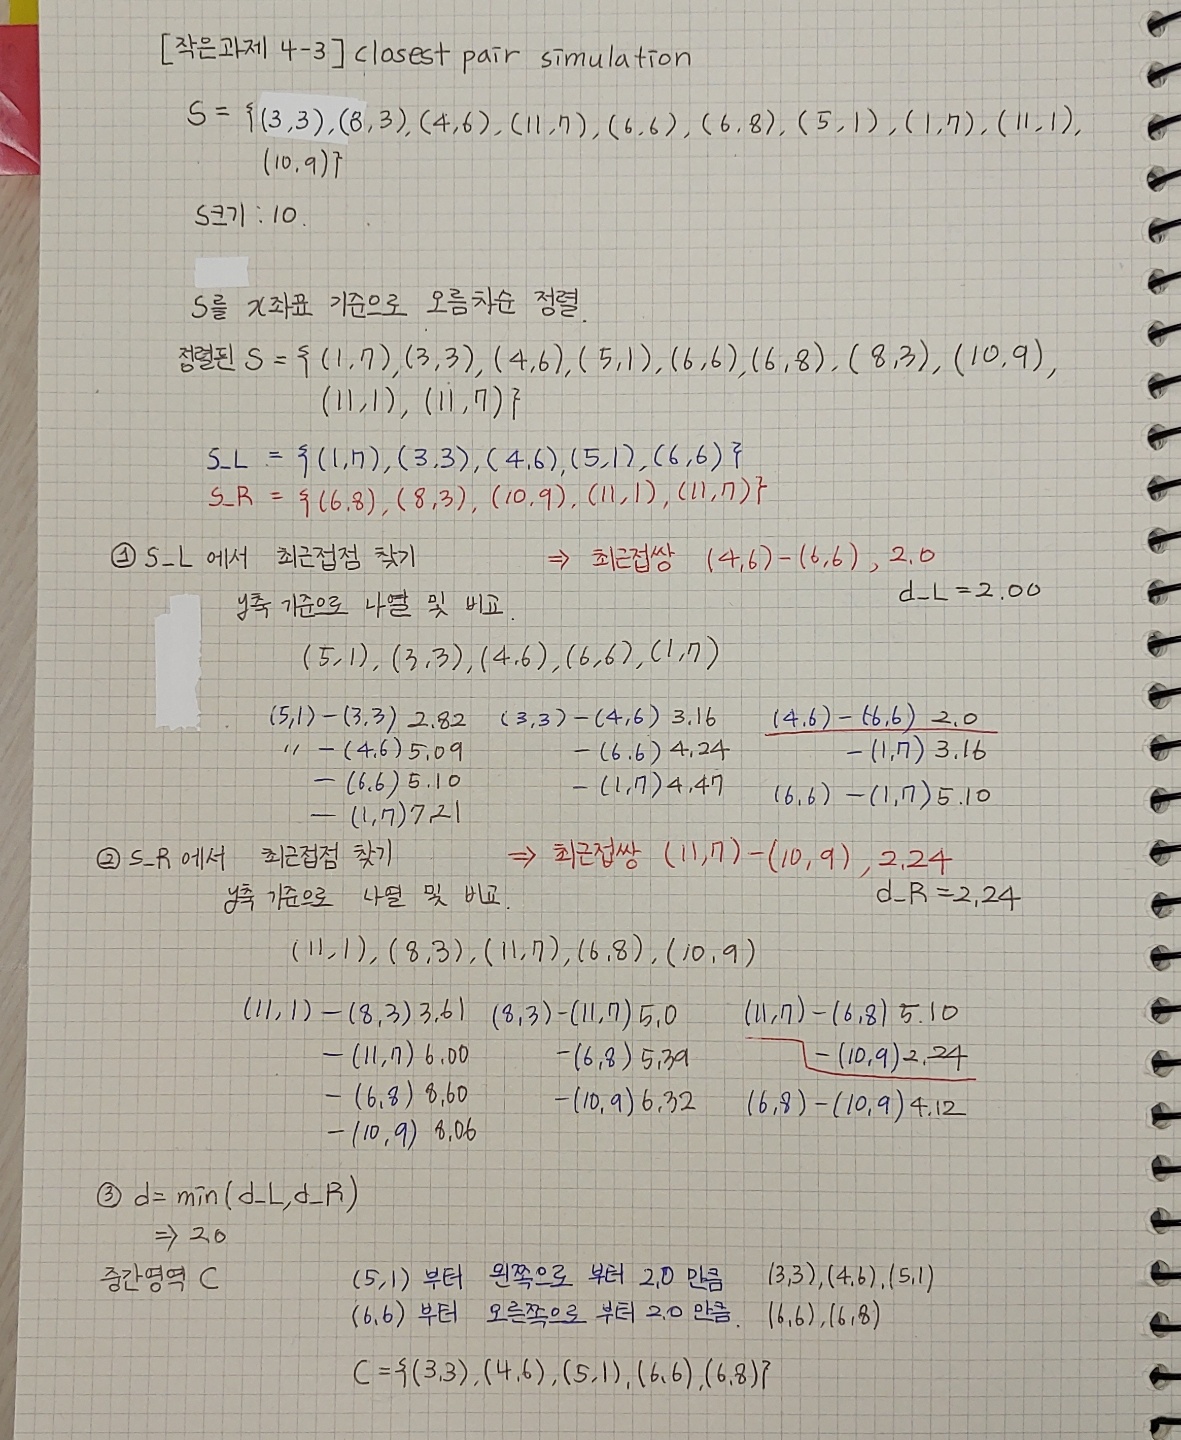 [작은과제 4-3] closest pair simulation
S = {(3,3), (8,3), (4,6), (11,7), (6,6), (6,8), (5,1), (1,7), (11,1),
(10,9)}
S크기 : 10.
S를 x좌표 기준으로 오름차순 정렬.
정렬된 S = {(1,7), (3,3), (4,6), (5,1), (6,6), (6,8), (8,3), (10,9),
(11,1), (11,7)}
S_L = {(1,7), (3,3), (4,6), (5,1), (6,6)}
S_R = {(6,8), (8,3), (10,9), (11,1), (11,7)}
① S_L 에서 최근접점 찾기 ⇒ 최근접쌍 (4,6)-(6,6), 2.0
d_L = 2.00
y축 기준으로 나열 및 비교.
(5,1), (3,3), (4,6), (6,6), (1,7)
(5,1) - (3,3) 2.82 (3,3) - (4,6) 3.16 (4,6) - (6,6) 2.0
〃 - (4,6) 5.09 - (6,6) 4.24 - (1,7) 3.16
- (6,6) 5.10 - (1,7) 4.47 (6,6) - (1,7) 5.10
- (1,7) 7.21
② S_R 에서 최근접점 찾기 ⇒ 최근접쌍 (11,7)-(10,9), 2.24
y축 기준으로 나열 및 비교. d_R = 2.24
(11,1), (8,3), (11,7), (6,8), (10,9)
(11,1) - (8,3) 3.61 (8,3) - (11,7) 5.0 (11,7) - (6,8) 5.10
- (11,7) 6.00 - (6,8) 5.39 - (10,9) 2.24
- (6,8) 8.60 - (10,9) 6.32 (6,8) - (10,9) 4.12
- (10,9) 8.06
③ d = min(d_L, d_R)
⇒ 2.0
중간영역 C (5,1) 부터 왼쪽으로 부터 2.0 만큼 (3,3), (4,6), (5,1)
(6,6) 부터 오른쪽으로 부터 2.0 만큼. (6,6), (6,8)
C = {(3,3), (4,6), (5,1), (6,6), (6,8)}